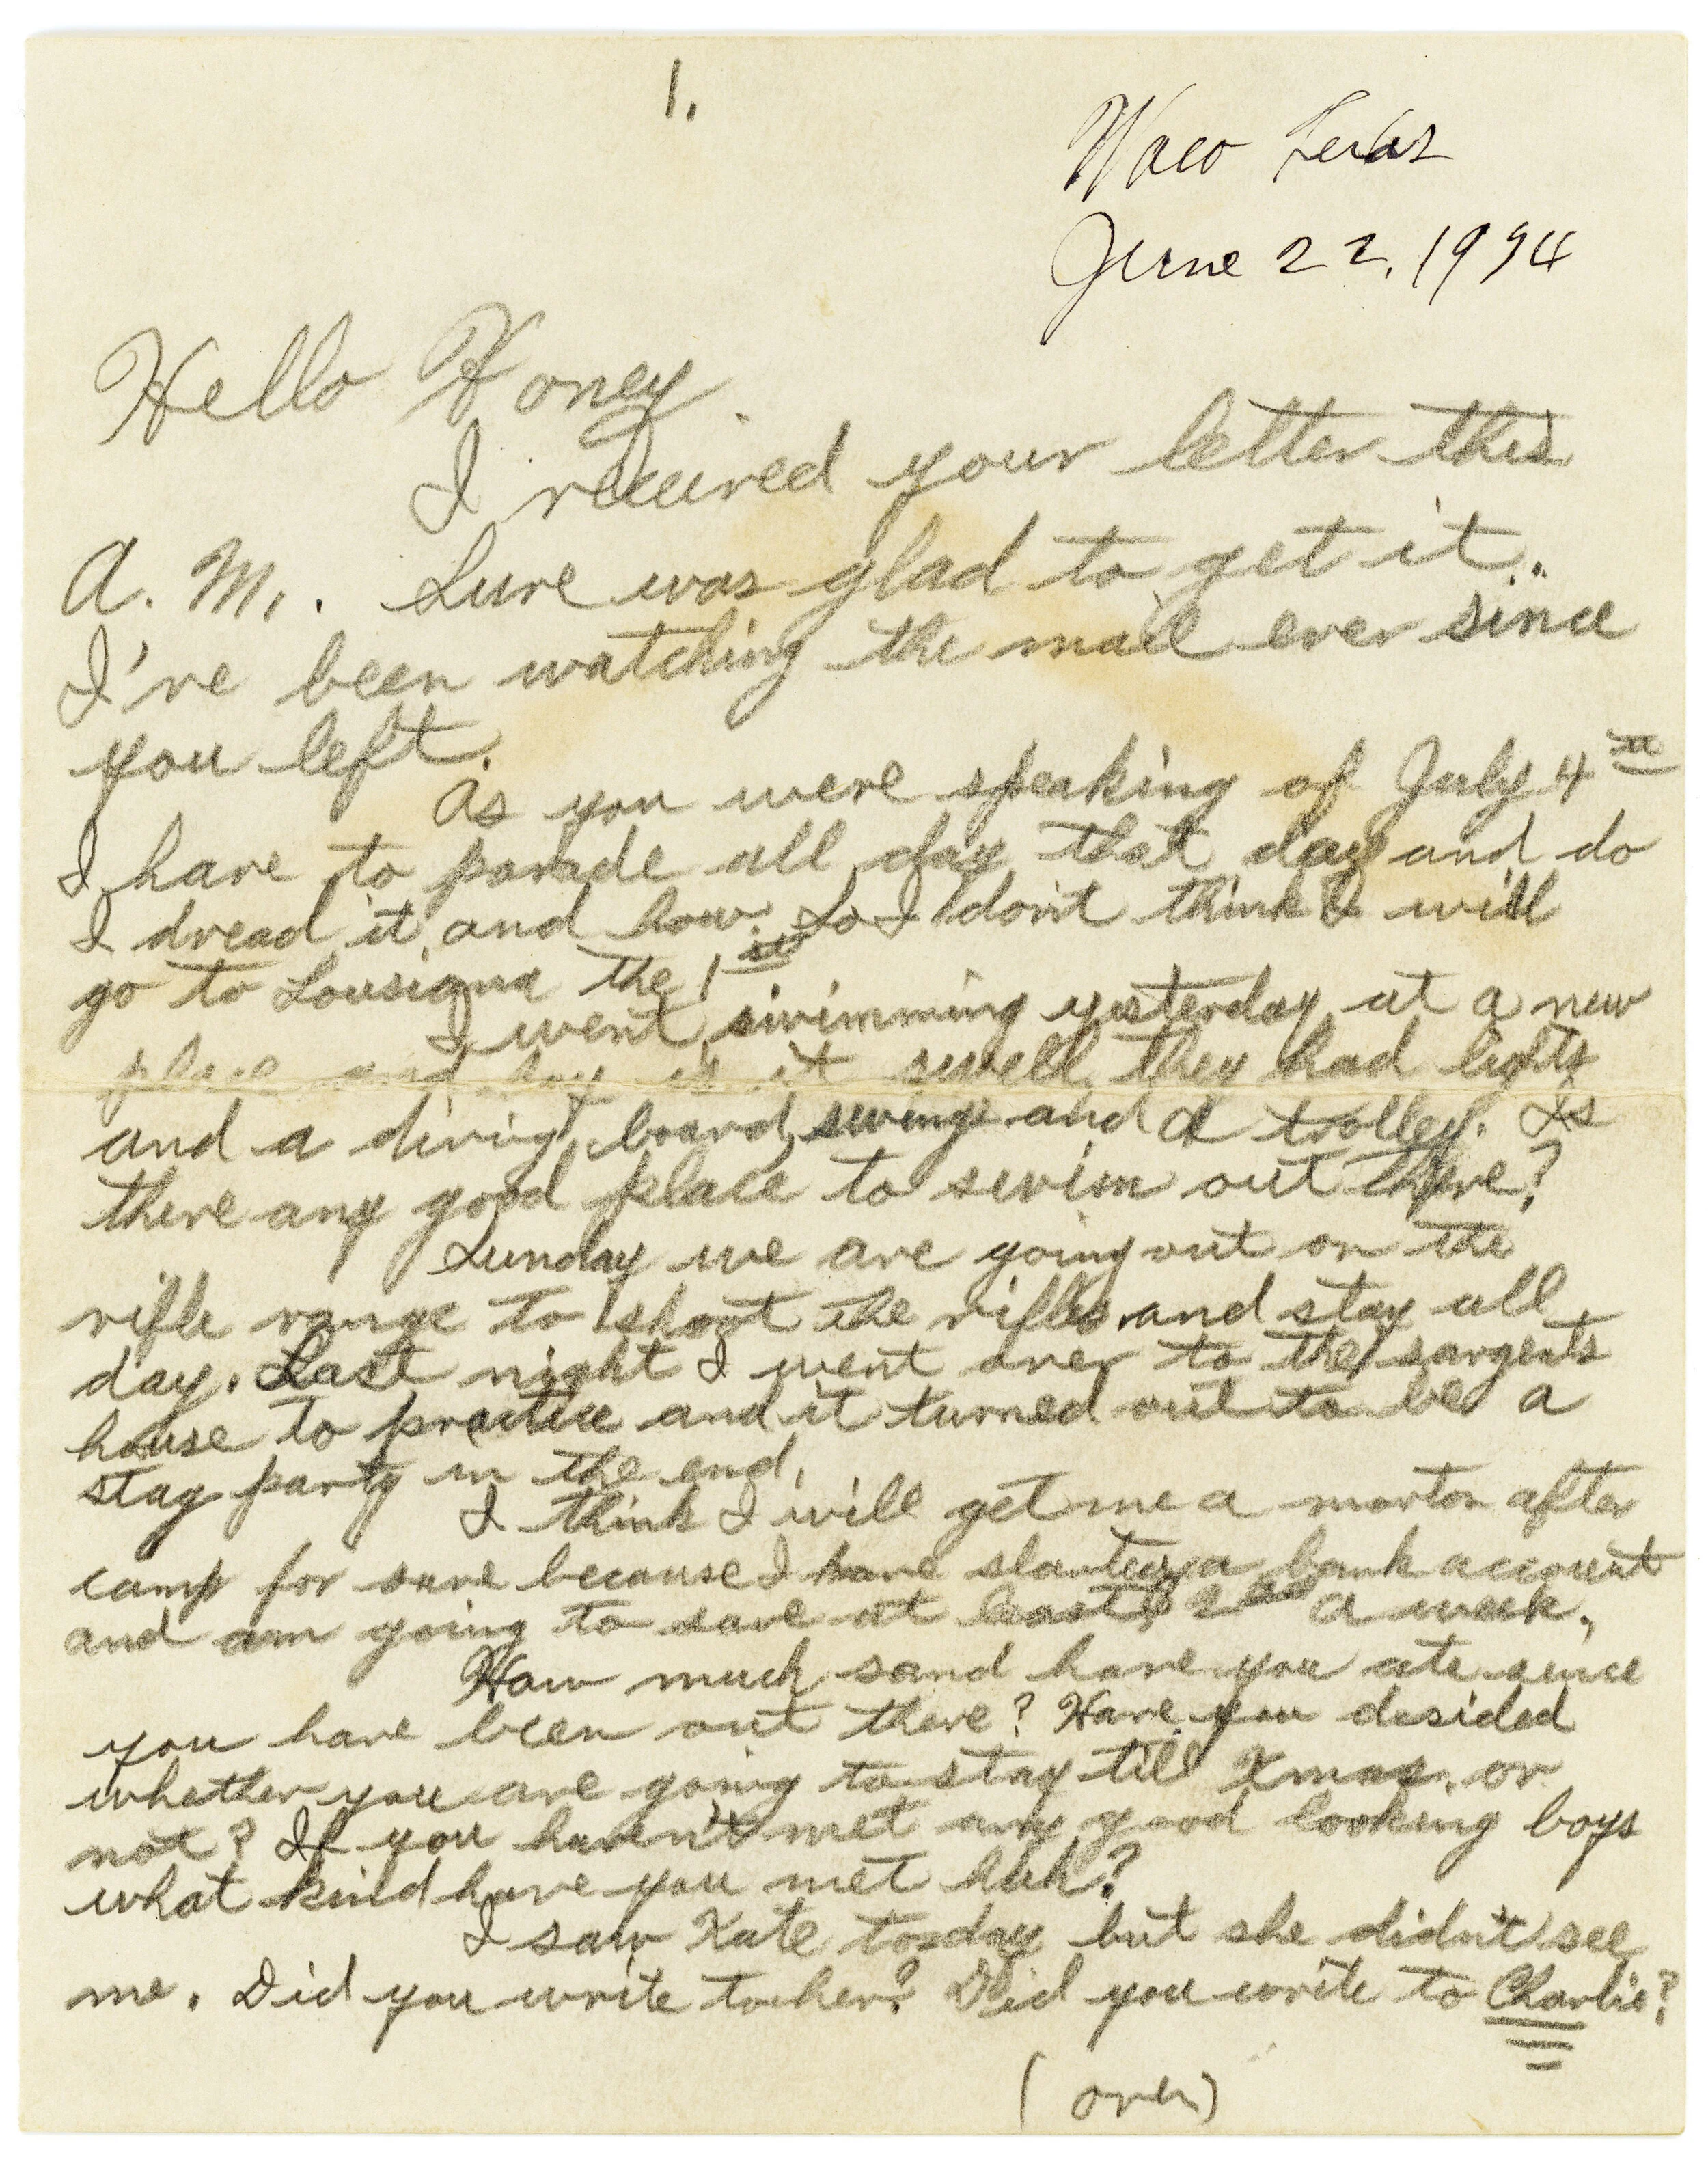 1.
Waco Texas
June 22, 1934
Hello Honey.
I received your letter this
A. M. . Sure was glad to get it..
I've been watching the mail ever since
you left.
As you were speaking of July 4th
I have to parade all day that day and do
I dread it and how. So I don't think I will
go to Lousiana the 1st
I went swimming yesterday at a new
place and boy is it swell they had lights
and a diving board, swings and a trolley. Is
there any good place to swim out there?
Sunday we are going out on the
rifle range to shoot the rifles and stay all
day. Last night I went over to the sargents
house to practice and it turned out to be a
stag party in the end.
I think I will get me a motor after
camp for sure because I have started a bank account
and am going to save at least $2.00 a week.
How much sand have you ate since
you have been out there? Have you desided
whether you are going to stay till Xmas. or
not? If you haven't met any good looking boys
what kind have you met huh?
I saw Kate today but she didn't see
me. Did you write to her? Did you write to Charlie?
(over)